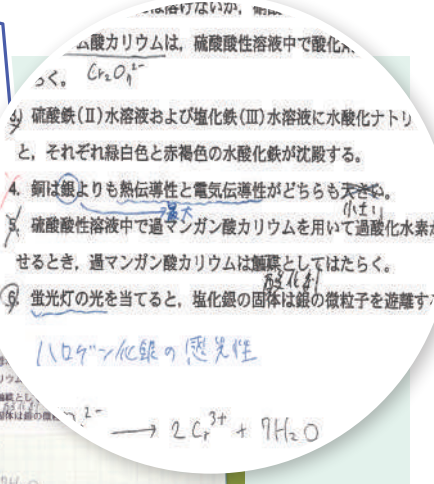 は溶けないが,
ム酸カリウムは, 硫酸酸性溶液中で酸化
らく。 Cr₂O₇²⁻
3. 硫酸鉄(Ⅱ)水溶液および塩化鉄(Ⅲ)水溶液に水酸化ナトリ
と, それぞれ緑白色と赤褐色の水酸化鉄が沈殿する。
4. 銅は銀よりも熱伝導性と電気伝導性がどちらも大きい。
最大 小さい
5. 硫酸酸性溶液中で過マンガン酸カリウムを用いて過酸化水素
せるとき, 過マンガン酸カリウムは触媒としてはたらく。
酸化剤
6. 蛍光灯の光を当てると, 塩化銀の固体は銀の微粒子を遊離す
ハロゲン化銀の感光性
²⁻ → 2Cr³⁺ + 7H₂O